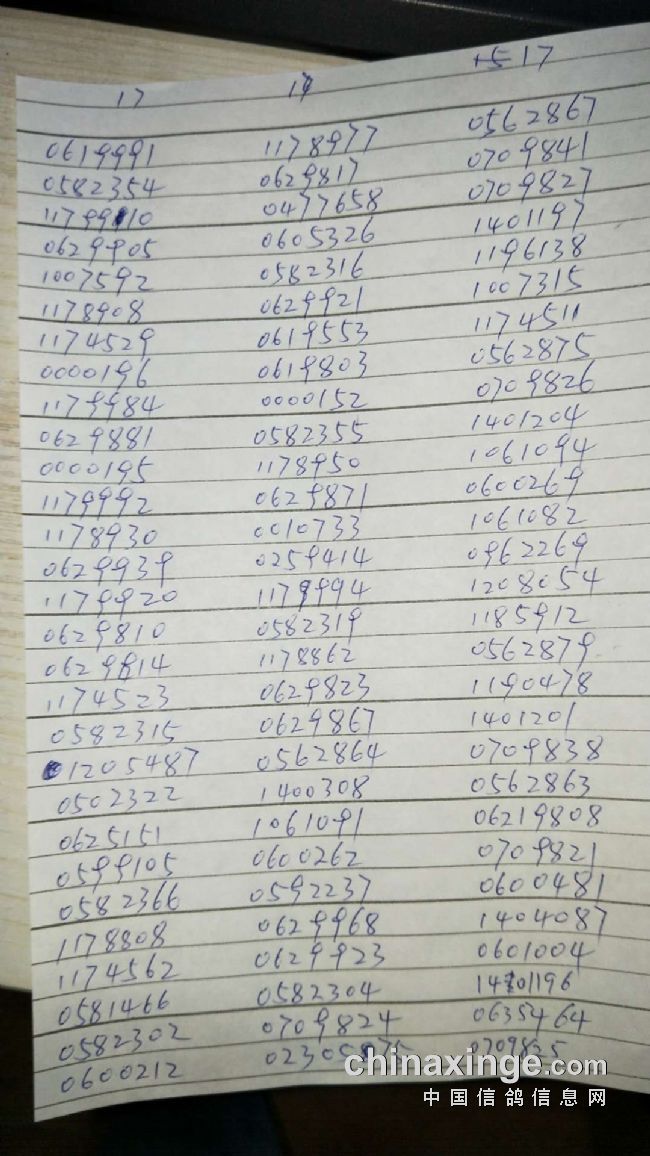 17 17 +517
0619991 1178977 0562867
0582354 0629817 0709841
1179910 0477658 0709827
0629905 0605326 1401197
1007592 0582316 1196138
1178908 0629921 1007315
1174529 0619553 1174511
0000196 0619803 0562875
1179984 0000152 0709826
0629881 0582355 1401204
0000195 1178950 1061094
1179992 0629871 0600269
1178930 0010733 1061082
0629939 0259414 0962269
1179920 1179994 1208054
0629810 0582319 1185912
0629814 1178862 0562879
1174523 0629823 1190478
0582315 0629867 1401201
01205487 0562864 0709838
0502322 1400308 0562863
0625151 1061091 06219808
0599105 0600262 0709821
0582366 0592237 0600481
1178808 0629968 1404087
1174562 0629923 0601004
0581466 0582304 1401196
0582302 0709824 0635464
0600212 0709825
chinaxinge.com
中国信鸽信息网